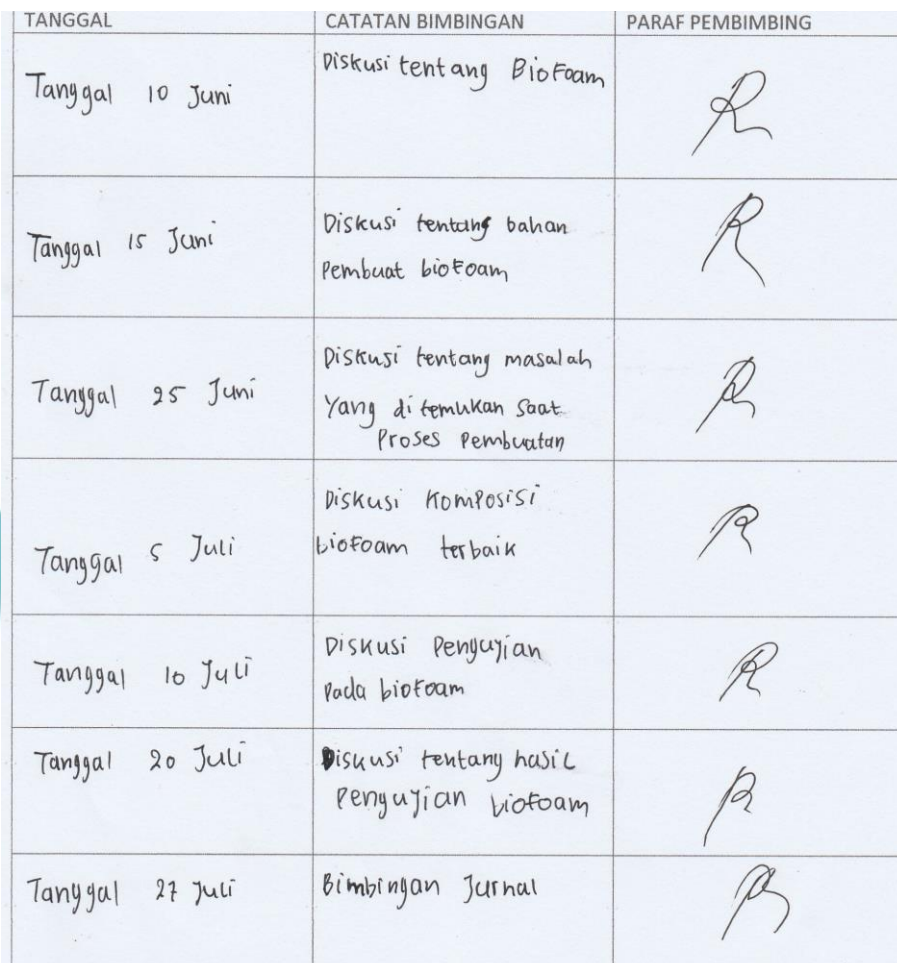 TANGGAL CATATAN BIMBINGAN PARAF PEMBIMBING
Tanggal 10 Juni
Diskusi tentang BioFoam
Tanggal 15 Juni
Diskusi tentang bahan
Pembuat bioFoam
Tanggal 25 Juni
Diskusi tentang masalah
Yang di temukan saat
Proses Pembuatan
Tanggal 5 Juli
Diskusi Komposisi
bioFoam terbaik
Tanggal 10 Juli
Diskusi Pengujian
Pada bioFoam
Tanggal 20 Juli
Diskusi tentang hasil
Pengujian bioFoam
Tanggal 27 Juli
Bimbingan Jurnal